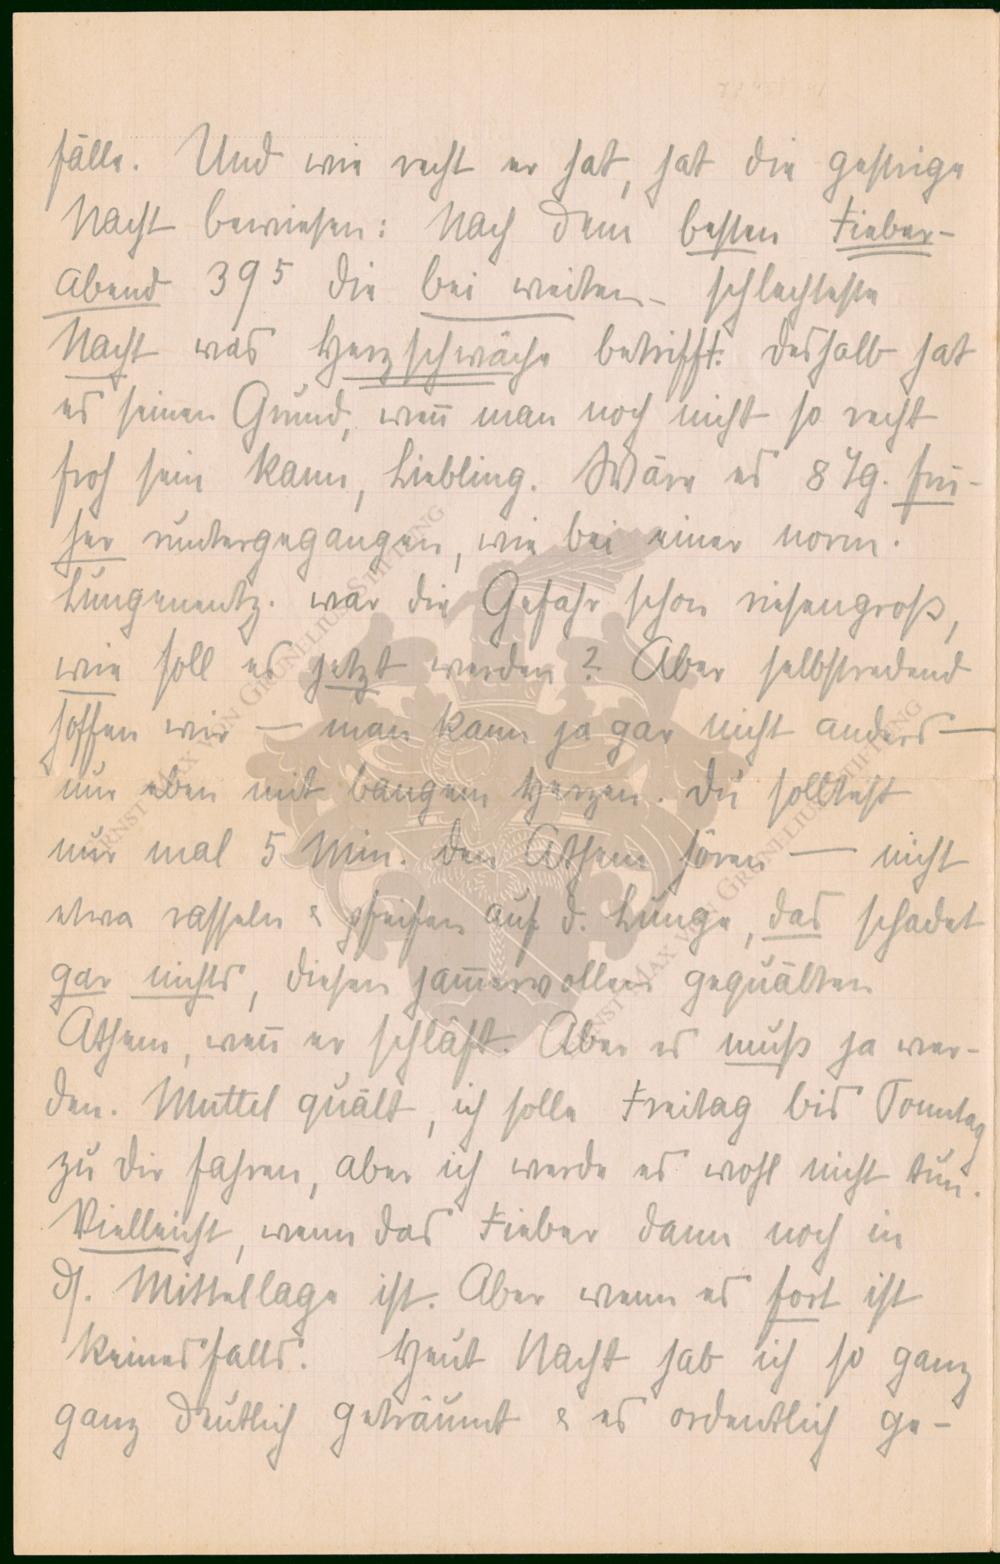 fälle. Und wie recht er hat, hat die gestrige
Nacht bewiesen: Nach dem besten Fieber-
abend 39⁵ die bei weitem schlechteste
Nacht was Herzschwäche betrifft. Deshalb hat
es seinen Grund, wen̄ man noch nicht so recht
froh sein kann, Liebling. Wäre es 8 Tg. frü-
her runtergegangen, wie bei einer norm.
Lungenentz. war die Gefahr schon riesengroß,
wie soll es jetzt werden? Aber selbstredend
hoffen wir — man kann ja gar nicht anders —
nur eben mit bangem Herzen. Du solltest
nur mal 5 Min. den Athem hören — nicht
etwa rasseln & pfeifen auf d. Lunge, das schadet
gar nichts, diesen jam̄ervollen gequälten
Athem, wen̄ er schläft. Aber es muß ja wer-
den. Muttel quält, ich solle Freitag bis Sonntag
zu Dir fahren, aber ich werde es wohl nicht tun.
Vielleicht, wenn das Fieber dann noch in
ds. Mittellage ist. Aber wenn es fort ist
keinesfalls. Heut Nacht hab ich so ganz
ganz deutlich geträumt & es ordentlich ge-
ERNST MAX VON GRUNELIUS STIFTUNG
ERNST MAX VON GRUNELIUS STIFTUNG